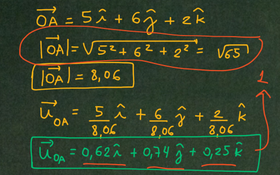 OA = 5î + 6ĵ + 2k̂
|OA| = √5² + 6² + 2² = √65
|OA| = 8,06
u⃗OA = 5/8,06 î + 6/8,06 ĵ + 2/8,06 k̂
u⃗OA = 0,62î + 0,74ĵ + 0,25k̂
1